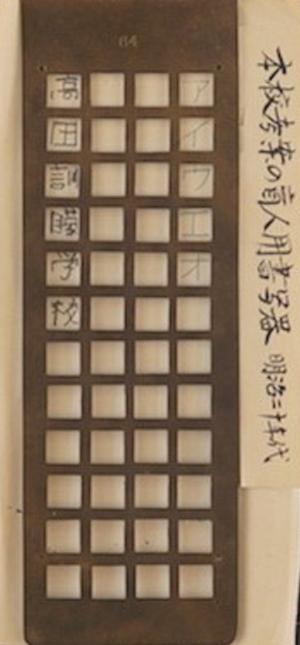 本校考案の盲人用書写器 明治二十年代
64
アイウエオ
高田訓瞽学校